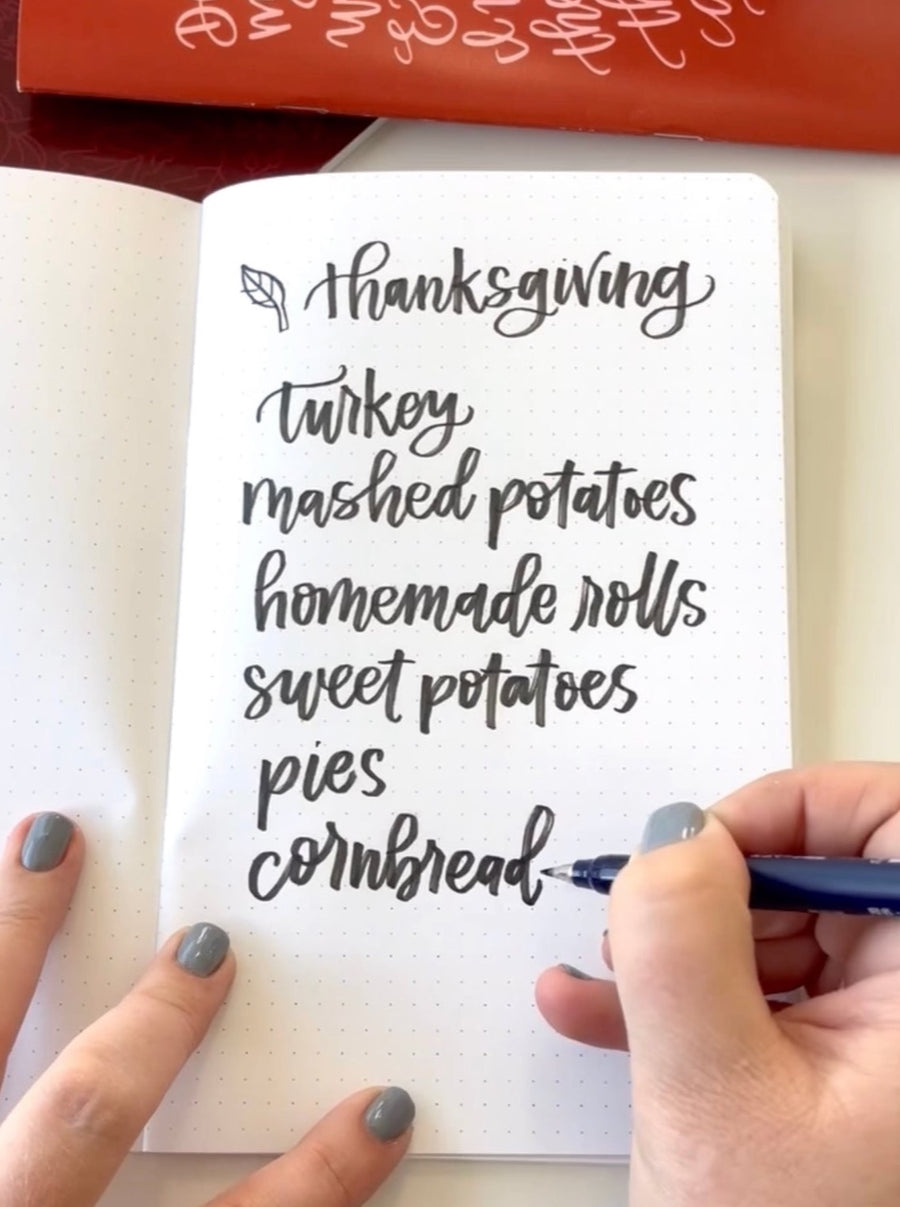 thanksgiving
turkey
mashed potatoes
homemade rolls
sweet potatoes
pies
cornbread